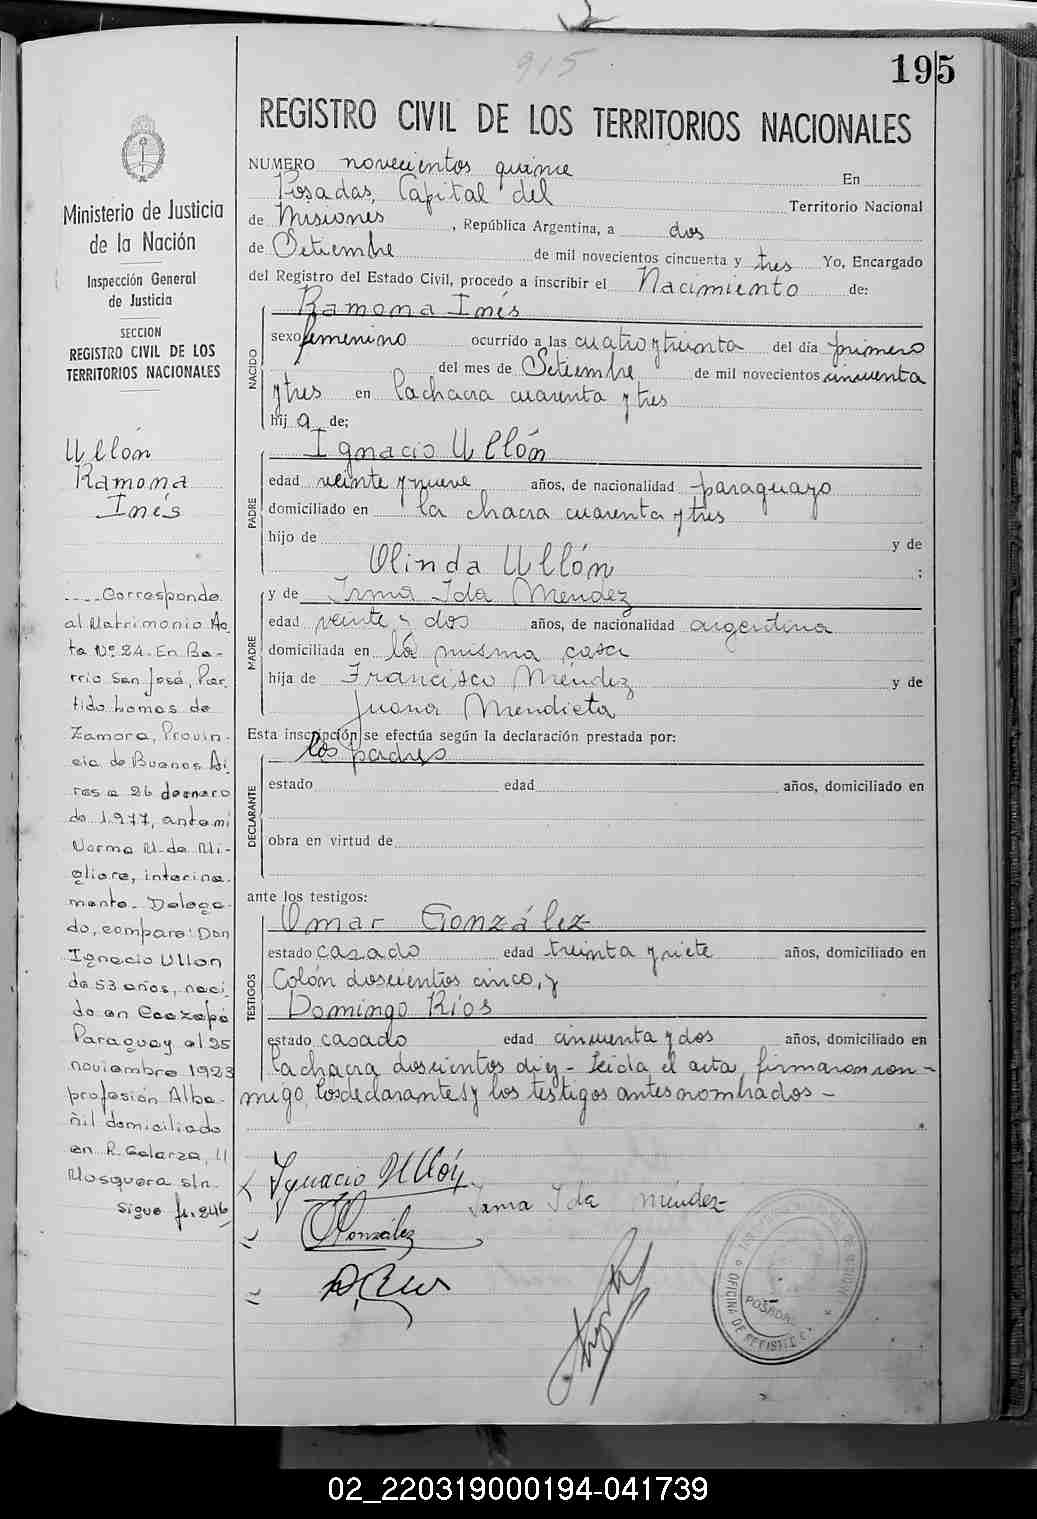 915
195
REGISTRO CIVIL DE LOS TERRITORIOS NACIONALES
Ministerio de Justicia
de la Nación
Inspección General
de Justicia
SECCION
REGISTRO CIVIL DE LOS
TERRITORIOS NACIONALES
Ullón
Ramona
Inés
....Corresponde
al Matrimonio Ac
ta Nº 24. En Ba-
rrio San José, Par-
tido Lomas de
Zamora, Provin-
cia de Buenos Ai
res a 26 de enero
de 1.977, ante mi
Norma M. de Mi-
gliore, interina-
mente. Delega-
do, compare: Don
Ignacio Ullon
de 53 años, naci
do en Caazapá
Paraguay el 25
noviembre 1923
profesión Alba-
ñil domiciliado
en R. Galarza, 11
Mosquera s/n.
Sigue fs. 246
NUMERO novecientos quince En
Posadas, Capital del Territorio Nacional
de Misiones, República Argentina, a dos
de Setiembre de mil novecientos cincuenta y tres Yo, Encargado
del Registro del Estado Civil, procedo a inscribir el Nacimiento de:
NACIDO
Ramona Inés
sexo femenino ocurrido a las cuatro y treinta del día primero
del mes de Setiembre de mil novecientos cincuenta
y tres en la chacra cuarenta y tres
hija de;
PADRE
Ignacio Ullón
edad veinte y nueve años, de nacionalidad paraguayo
domiciliado en la chacra cuarenta y tres
hijo de y de
Olinda Ullón ;
MADRE
y de Irma Ida Mendez
edad veinte y dos años, de nacionalidad argentina
domiciliada en la misma casa
hija de Francisco Mendez y de
Juana Mendieta
Esta inscripción se efectúa según la declaración prestada por:
DECLARANTE
los padres
estado edad años, domiciliado en
obra en virtud de
ante los testigos:
TESTIGOS
Omar González
estado casado edad treinta y siete años, domiciliado en
Colón doscientos cinco, y
Domingo Ríos
estado casado edad cincuenta y dos años, domiciliado en
la chacra doscientos diez - Leída el acta, firmaron con-
migo, los declarantes y los testigos antes nombrados -
Ignacio Ullón
Irma Ida Méndez
González
OFICINA DE REGISTRO
POSADAS
02_220319000194-041739